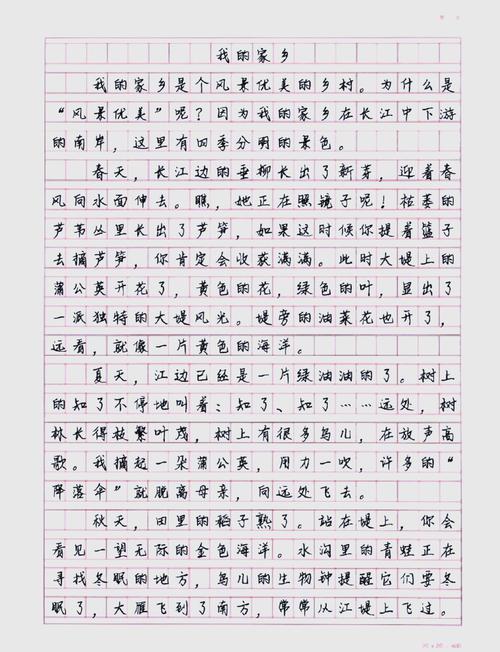 我的家乡
我的家乡是个风景优美的乡村。为什么是
“风景优美”呢？因为我的家乡在长江中下游
的南岸，这里有四季分明的景色。
春天，长江边的垂柳长出了新芽，迎着春
风向水面伸去。瞧，她正在照镜子呢！枯萎的
芦苇丛里长出了芦笋，如果这时候你提着篮子
去摘芦笋，你肯定会收获满满。此时大堤上的
蒲公英开花了，黄色的花，绿色的叶，显出了
一派独特的大堤风光。堤旁的油菜花也开了，
远看，就像一片黄色的海洋。
夏天，江边已经是一片绿油油的了。树上
的知了不停地叫着：知了、知了……远处，树
林长得枝繁叶茂，树上有很多鸟儿，在放声高
歌。我摘起一朵蒲公英，用力一吹，许多的“
降落伞”就脱离母亲，向远处飞去。
秋天，田里的稻子熟了。站在堤上，你会
看见一望无际的金色海洋。水沟里的青蛙正在
寻找冬眠的地方，鸟儿的生物钟提醒它们要冬
眠了，大雁飞到了南方，常常从江堤上飞过。